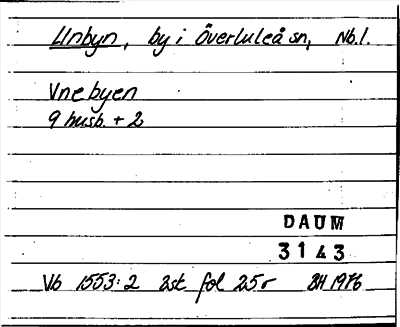 Unbyn, by i Överluleå sn, Nb.l.
Vnebyen
9 husb. + 2
DAUM
3143
Vb 1553:2 2st fol 25r BH 1976